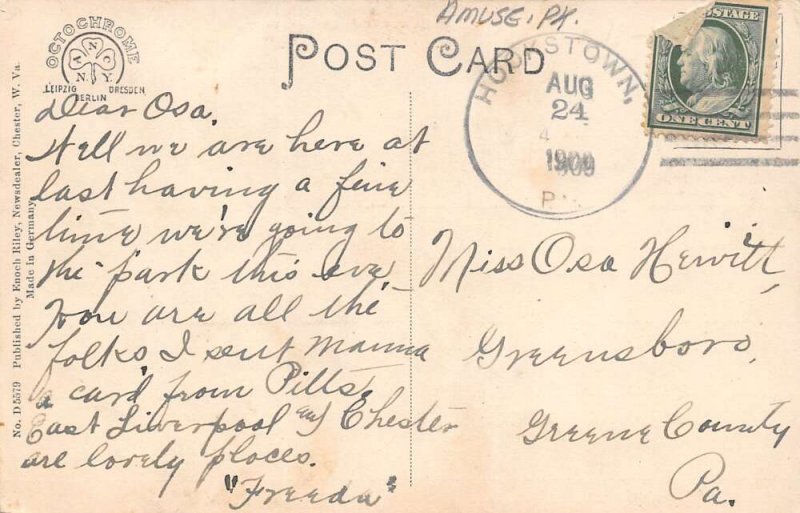 AMUSE. PK.
OCTOCHROME
ANC
N.Y.
LEIPZIG DRESDEN
BERLIN
POST CARD
HOOKSTOWN,
AUG
24
4
1909
PA.
POSTAGE
ONE CENT
No. D 5579 Published by Enoch Riley, Newsdealer, Chester, W. Va.
Made in Germany
Dear Osa.
Well we are here at
last having a fine
time we're going to
the park this eve,
How are all the
folks I sent Mamma
a card from Pitts.
East Liverpool and Chester
are lovely places.
"Freeda"
Miss Osa Hewitt,
Greensboro,
Greene County
Pa.